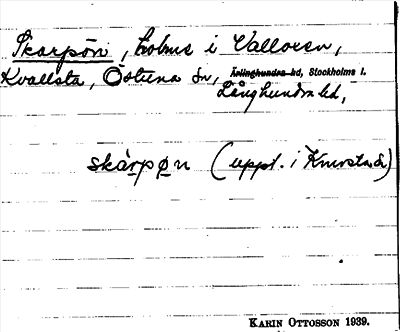 Skarpön, holme i Valloxen,
Kvallsta, Östuna sn, Ärlinghundra hd, Stockholms l.
Långhundra hd,
skàrpøn (uppt. i Knivsta sn)
KARIN OTTOSSON 1939.